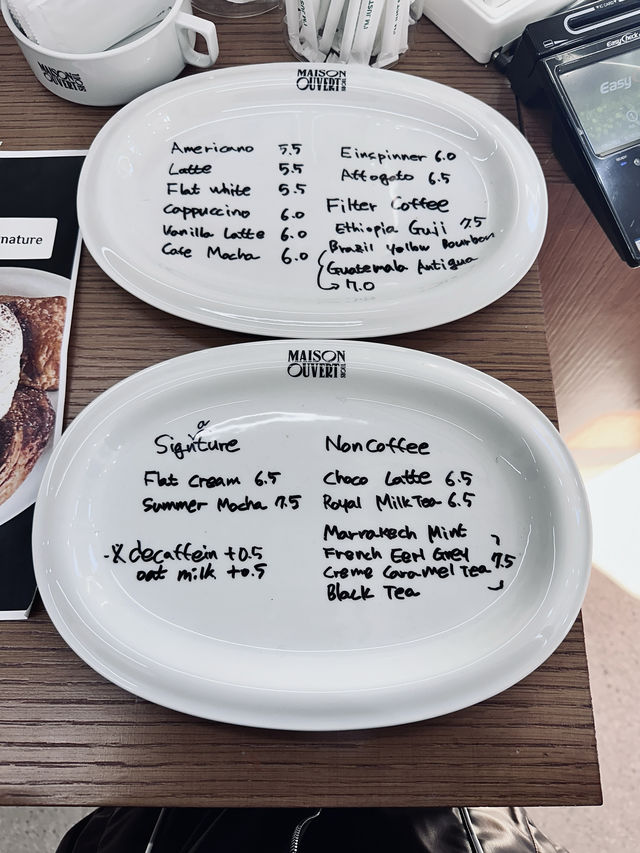 MAISON
OUVERT
SEOUL
MAISON
OUVERT
Americano 5.5
Latte 5.5
Flat white 5.5
Cappuccino 6.0
Vanilla Latte 6.0
Cafe Mocha 6.0
Einspinner 6.0
Affogato 6.5
Filter Coffee
Ethiopia Guji 7.5
Brazil Yellow Bourbon
Guatemala Antigua
→ 7.0
nature
Easy
EasyCheck
MAISON
OUVERT
SEOUL
Signture
a
Flat Cream 6.5
Summer Mocha 7.5
※ decaffein +0.5
oat milk +0.5
NonCoffee
Choco Latte 6.5
Royal Milk Tea 6.5
Marrakech Mint
French Earl Grey
Creme Caramel Tea 7.5
Black Tea